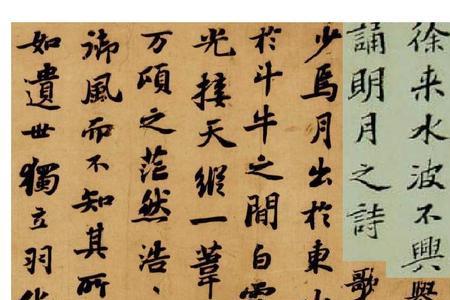 徐来水波不興
誦明月之詩歌
少焉月出於東
於斗牛之間白露
光接天縱一葦
万頃之茫然浩〻
御風而不知其所
如遺世獨立羽